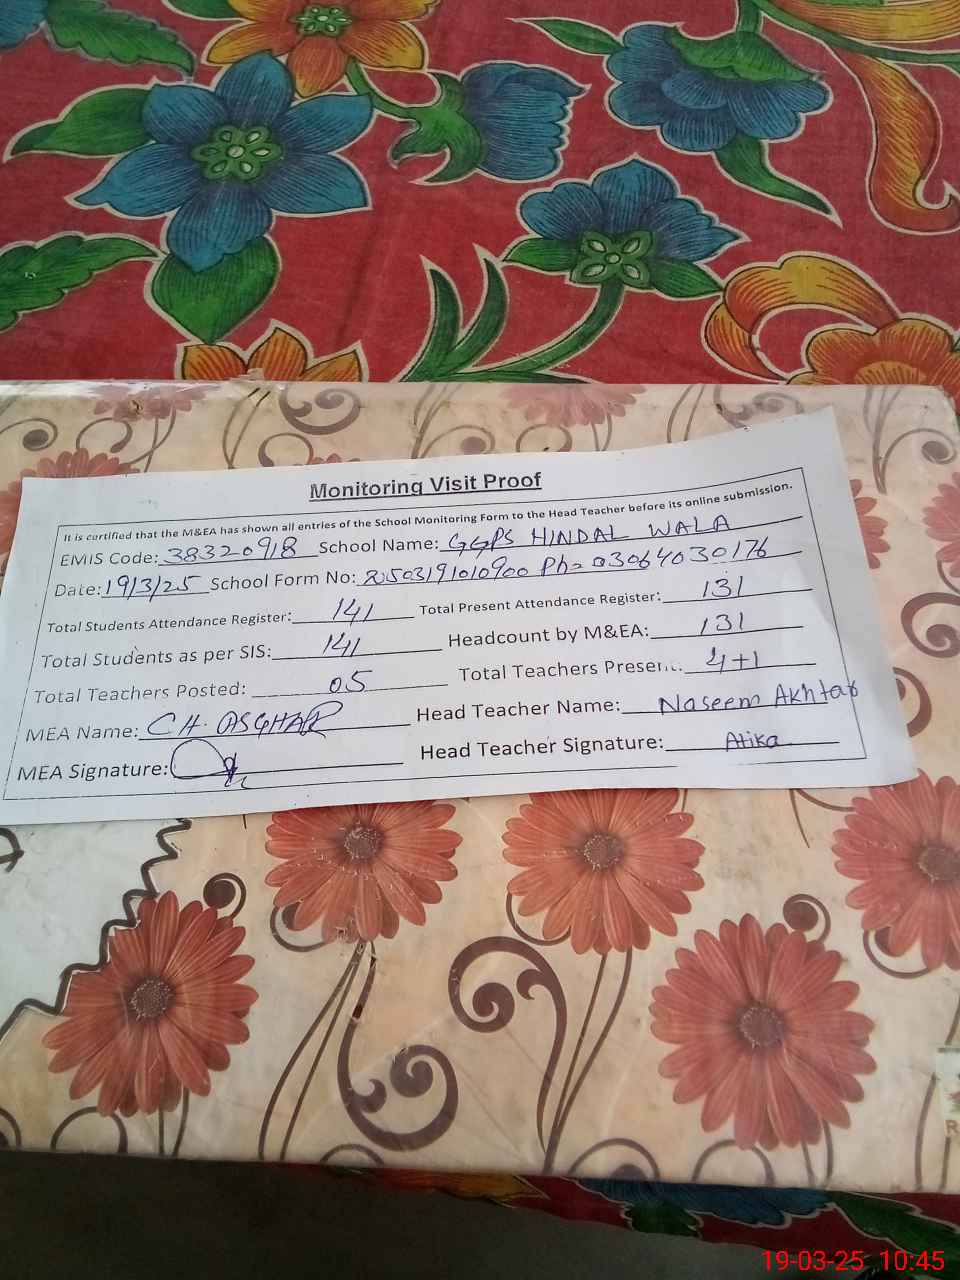 Monitoring Visit Proof
It is certified that the M&EA has shown all entries of the School Monitoring Form to the Head Teacher before its online submission.
EMIS Code: 38320918 School Name: GGPS HINDAL WALA
Date: 19/3/25 School Form No: 20503191010900 Ph= 03064030176
Total Students Attendance Register: 141 Total Present Attendance Register: 131
Total Students as per SIS: 141 Headcount by M&EA: 131
Total Teachers Posted: 05 Total Teachers Present: 4+1
MEA Name: CH. ASGHAR Head Teacher Name: Naseem Akhtar
MEA Signature: Head Teacher Signature: Atika
19-03-25 10:45